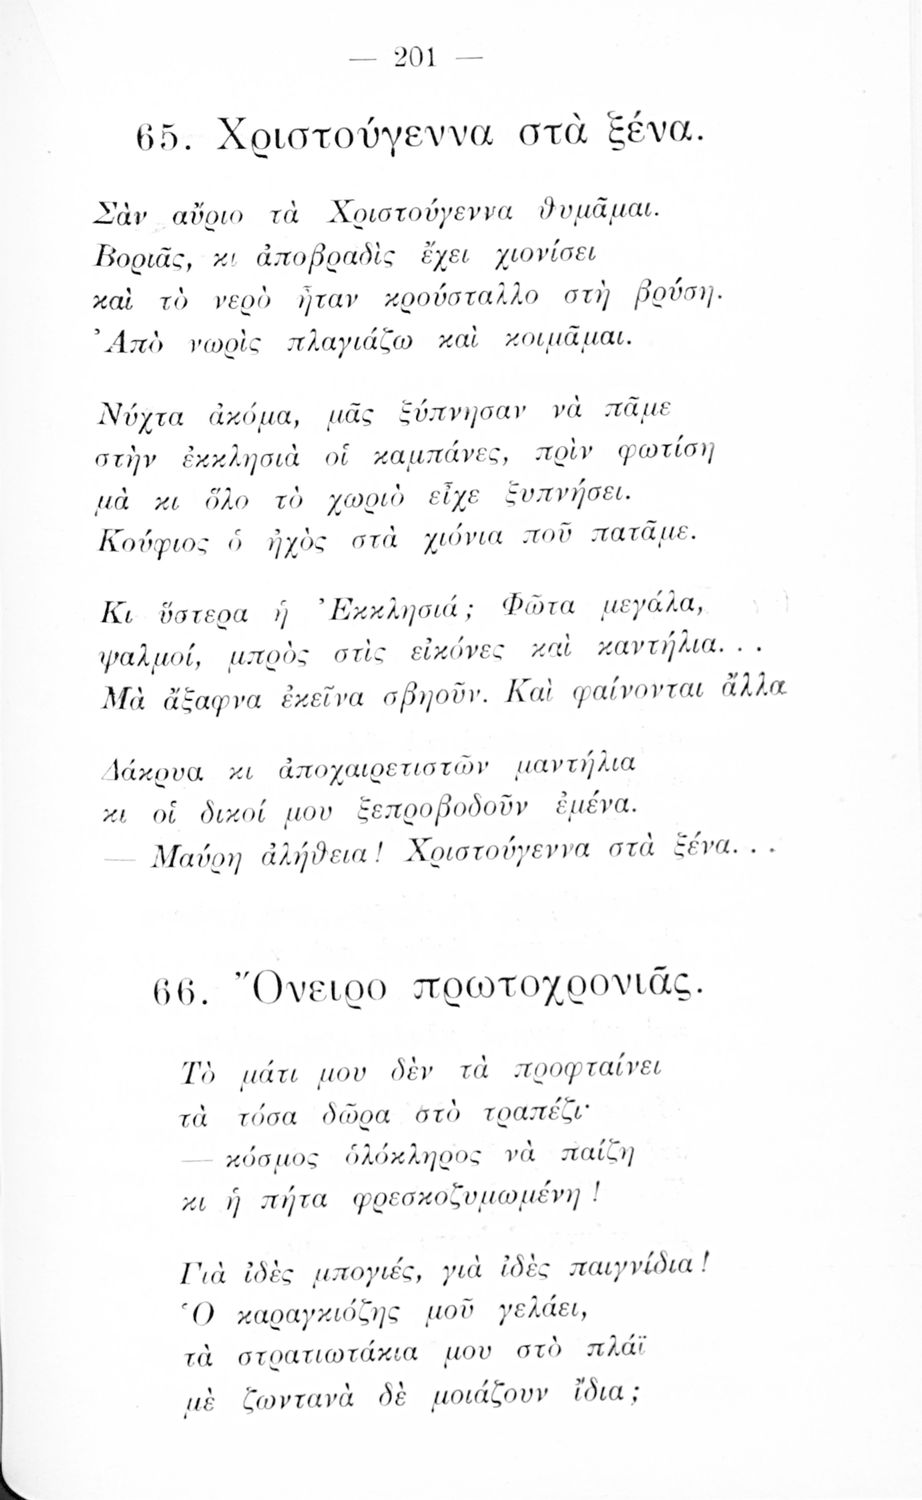 — 201 —
65. Χριστούγεννα στὰ ξένα.
Σὰν αὔριο τὰ Χριστούγεννα θυμᾶμαι.
Βοριᾶς, κι ἀποβραδὶς ἔχει χιονίσει
καὶ τὸ νερὸ ἦταν κρούσταλλο στὴ βρύση.
Ἀπὸ νωρὶς πλαγιάζω καὶ κοιμᾶμαι.
Νύχτα ἀκόμα, μᾶς ξύπνησαν νὰ πᾶμε
στὴν ἐκκλησιὰ οἱ καμπάνες, πρὶν φωτίση
μὰ κι ὅλο τὸ χωριὸ εἶχε ξυπνήσει.
Κούφιος ὁ ἠχὸς στὰ χιόνια ποῦ πατᾶμε.
Κι ὕστερα ἡ Ἐκκλησιά; Φῶτα μεγάλα,
ψαλμοί, μπρὸς στὶς εἰκόνες καὶ καντήλια. . .
Μὰ ἄξαφνα ἐκεῖνα σβηοῦν. Καὶ φαίνονται ἄλλα
Δάκρυα κι ἀποχαιρετιστῶν μαντήλια
κι οἱ δικοί μου ξεπροβοδοῦν ἐμένα.
— Μαύρη ἀλήθεια! Χριστούγεννα στὰ ξένα. . .
66. Ὄνειρο πρωτοχρονιᾶς.
Τὸ μάτι μου δὲν τὰ προφταίνει
τὰ τόσα δῶρα στὸ τραπέζι·
— κόσμος ὁλόκληρος νὰ παίζη
κι ἡ πήτα φρεσκοζυμωμένη!
Γιὰ ἰδὲς μπογιές, γιὰ ἰδὲς παιγνίδια!
Ὁ καραγκιόζης μοῦ γελάει,
τὰ στρατιωτάκια μου στὸ πλάϊ
μὲ ζωντανὰ δὲ μοιάζουν ἴδια;